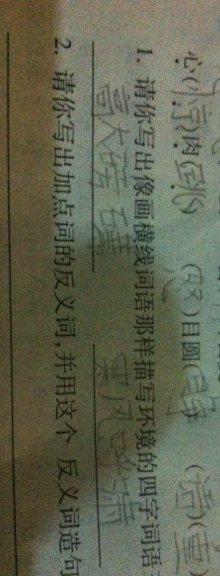 心(惊)肉(跳) (怒)目圆(睁) (语)(重)
1. 请你写出像画横线词语那样描写环境的四字词语
高大磅礴 寒风
2. 请你写出加点词的反义词,并用这个 反义词造句